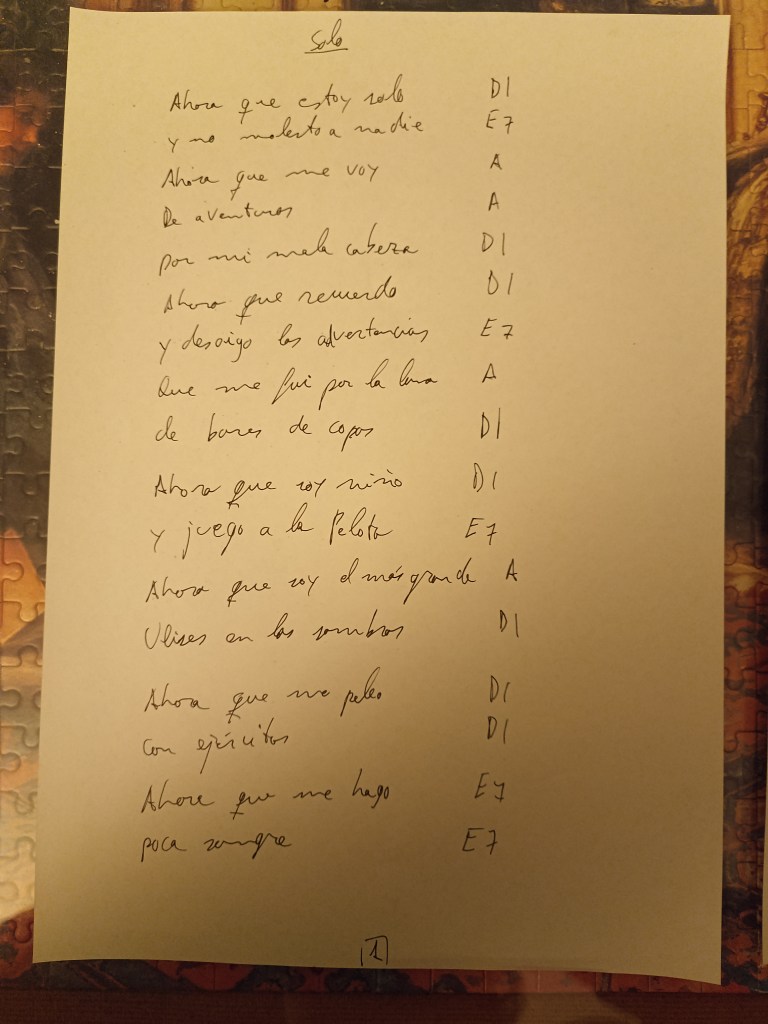 Solo
Ahora que estoy solo D1
y no molesto a nadie E7
Ahora que me voy A
De aventuras A
por mi mala cabeza D1
Ahora que recuerdo D1
y desoigo las advertencias E7
Que me fui por la luna A
de bares de copas D1
Ahora que soy niño D1
y juego a la Pelota E7
Ahora que soy el más grande A
Ulises en las sombras D1
Ahora que me peleo D1
con ejércitos D1
Ahora que me hago E7
poca sangre E7
1